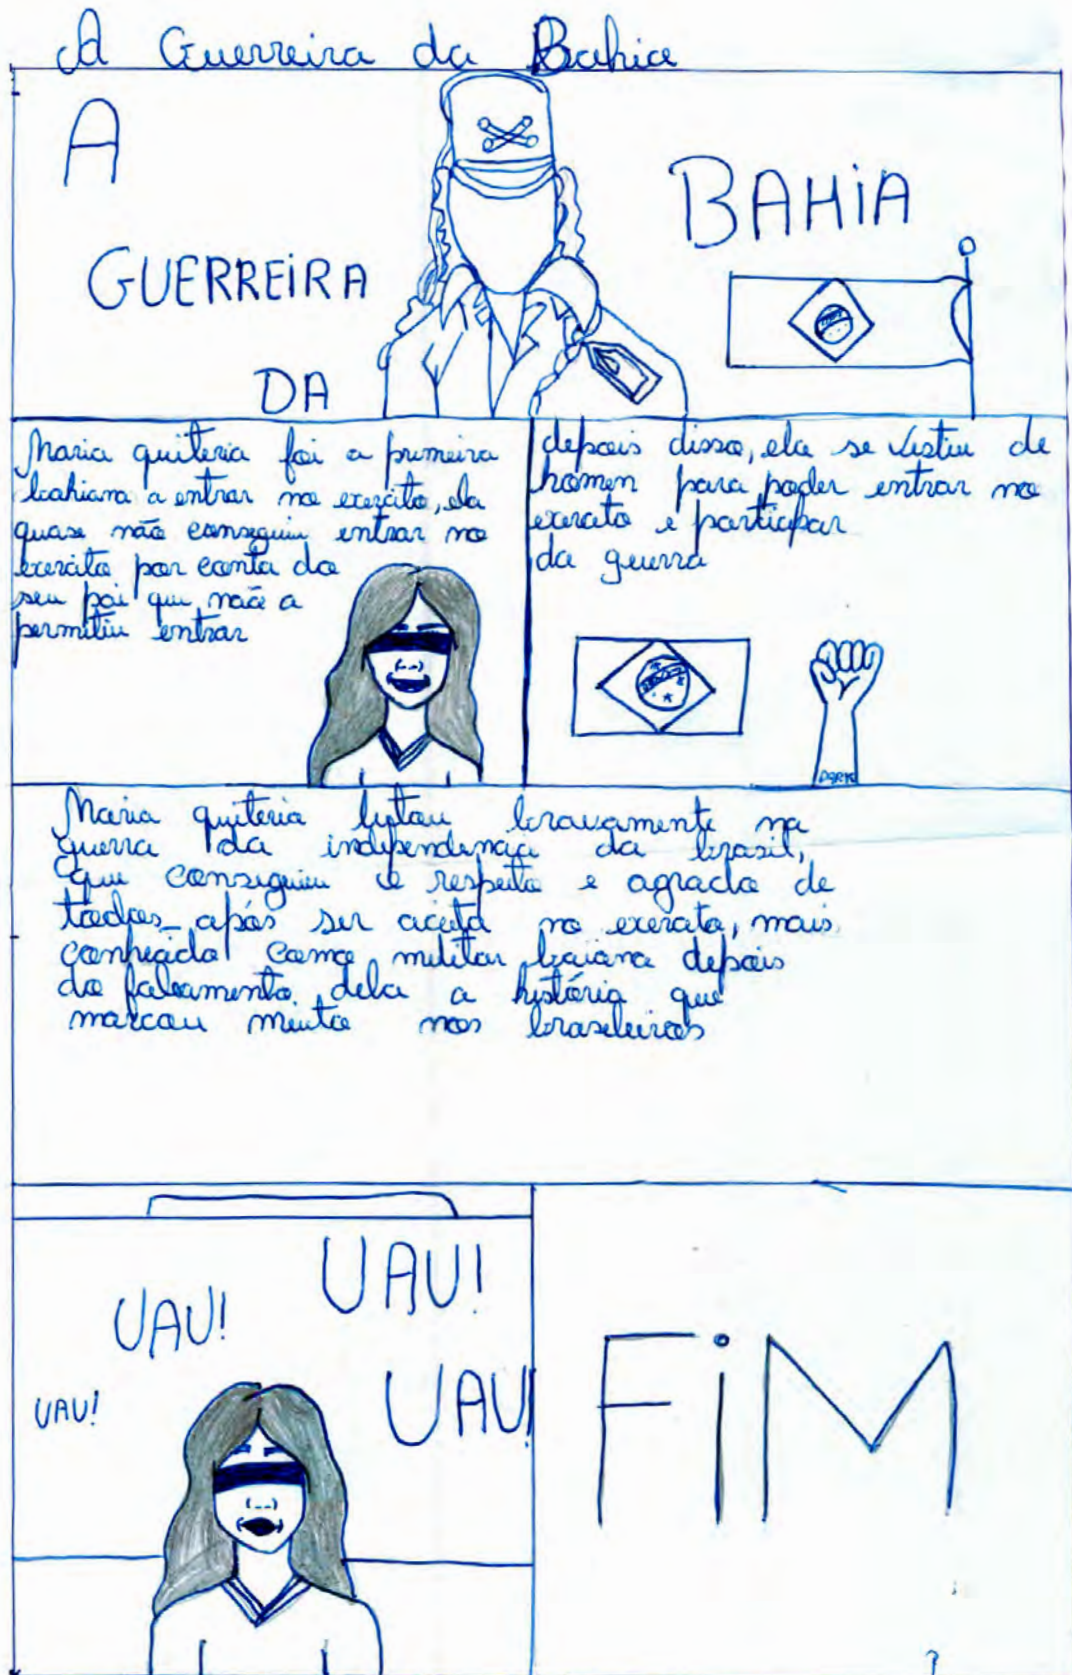 A Guerreira da Bahia
A
GUERREiRA
DA
BAHiA
Maria quiteria foi a primeira
bahiana a entrar no exercito, ela
quase não conseguiu entrar no
exercito por conta do
seu pai que não a
permitiu entrar
depois disso, ela se vistiu de
homen para poder entrar no
exercito e participar
da guerra
Maria quiteria lutou bravamente na
guerra da independencia da brasil,
que conseguiu o respeito e agrado de
todos após ser aceita no exercito, mais
conhecida como militar baiana depois
do falecimento dela a história que
marcou muito nos brasileiros
UAU!
UAU!
UAU!
UAU!
FiM